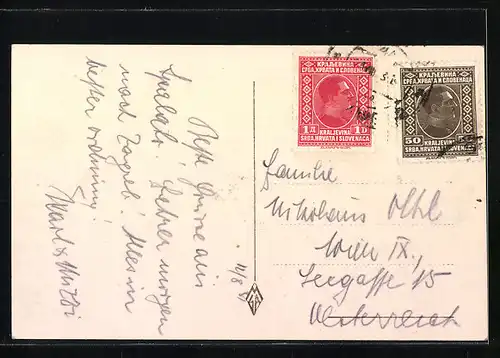 Beste Grüsse aus
Spalato. Fahren morgen
nach Zagreb. Alles in
bester Ordnung!
12/8
КРАЉЕВИНА
СРБА, ХРВАТА И СЛОВЕНАЦА
1 Д 1 D
KRALJEVINA
SRBA, HRVATA I SLOVENACA
КРАЉЕВИНА
СРБА, ХРВАТА И СЛОВЕНАЦА
50
KRALJEVINA
SRBA, HRVATA I SLOVENACA
Familie
Nikolaus
Wien IX,
Seegasse 15
Oesterreich